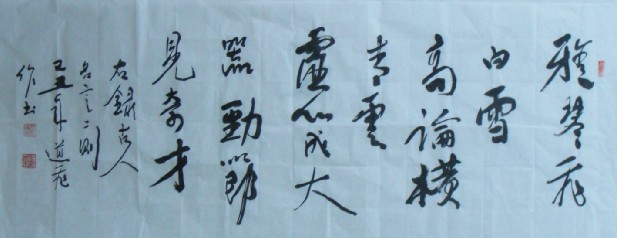 雅琴飛
白雪
高論橫
青雲
虛心成大
器勁節
見奇才
右錄古人
吉言二則
己丑年道龍
作書